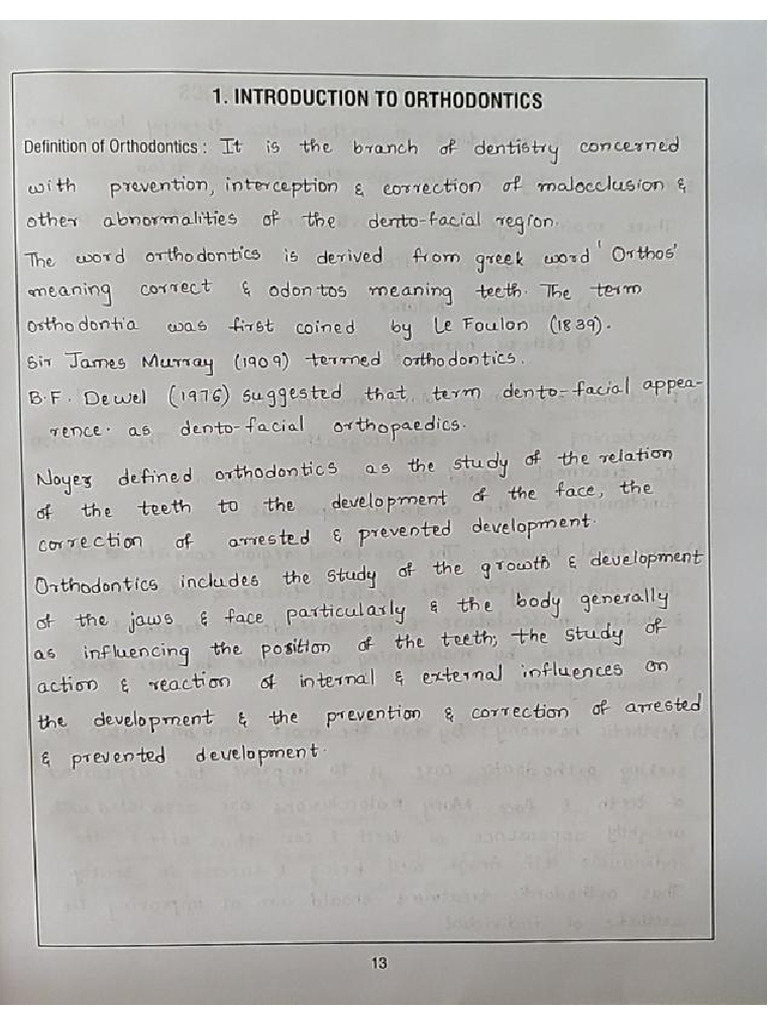 1. INTRODUCTION TO ORTHODONTICS
Definition of Orthodontics : It is the branch of dentistry concerned
with prevention, interception & correction of malocclusion &
other abnormalities of the dento-facial region.
The word orthodontics is derived from greek word 'Orthos'
meaning correct & odontos meaning teeth. The term
Orthodontia was first coined by Le Foulon (1839).
Sir James Murray (1909) termed orthodontics.
B.F. Dewel (1976) suggested that term dento-facial appea-
rence. as dento-facial orthopaedics.
Noyes defined orthodontics as the study of the relation
of the teeth to the development of the face, the
correction of arrested & prevented development.
Orthodontics includes the study of the growth & development
of the jaws & face particularly & the body generally
as influencing the position of the teeth; the study of
action & reaction of internal & external influences on
the development & the prevention & correction of arrested
& prevented development.
13